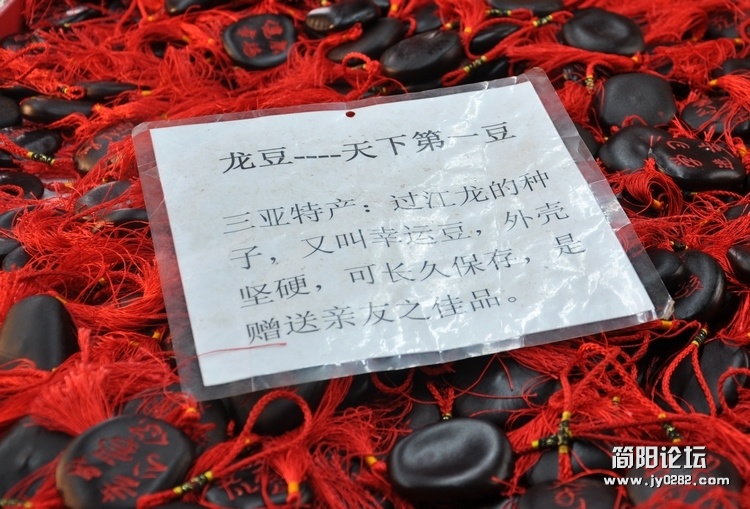 龙豆----天下第一豆
三亚特产：过江龙的种
子，又叫幸运豆，外壳
坚硬，可长久保存，是
赠送亲友之佳品。
简阳论坛
www.jy0282.com